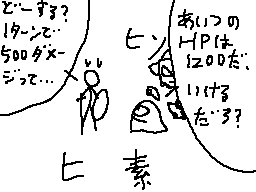 どーする?
1ターンで
500ダメー
ジって…
あいつの
HPは
1200だ、
いける
だろ?
ヒソ
ヒ素